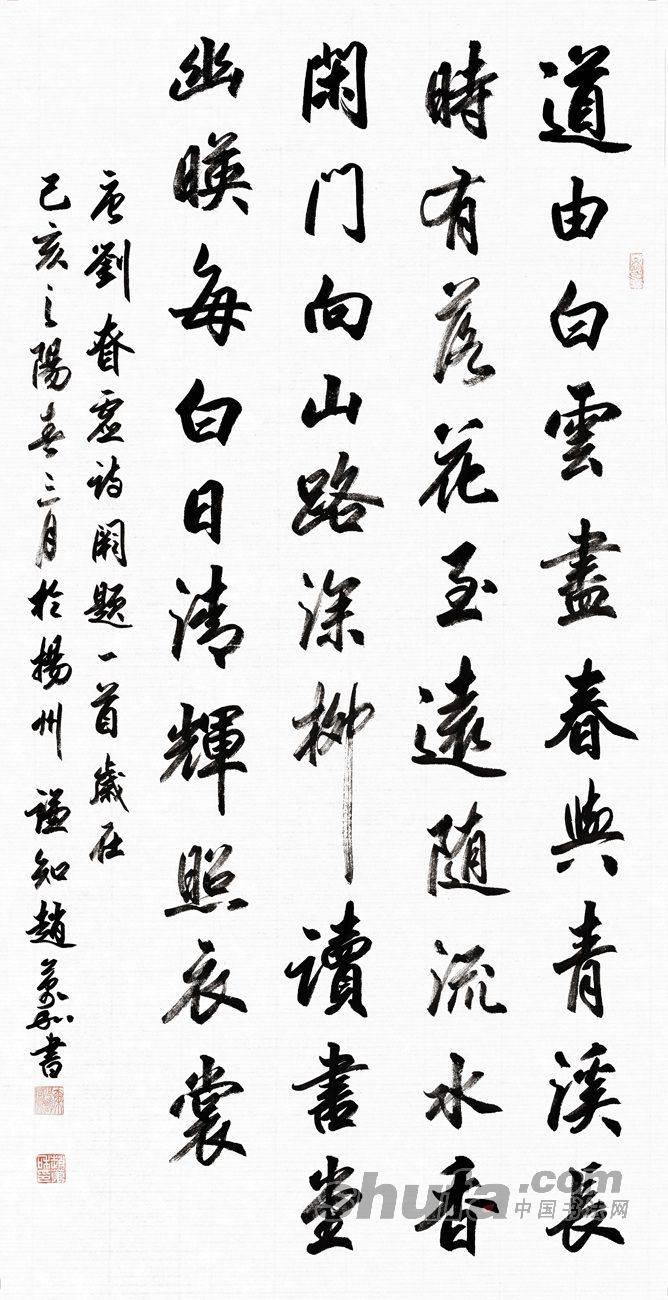 道由白雲盡春與青溪長
時有落花至遠随流水香
閑門向山路深柳讀書堂
幽暎每白日清輝照衣裳
唐劉眘虛詩闕題一首歲在
己亥之陽春三月於揚州謙知趙萬和書
shufa.com
中国书法网